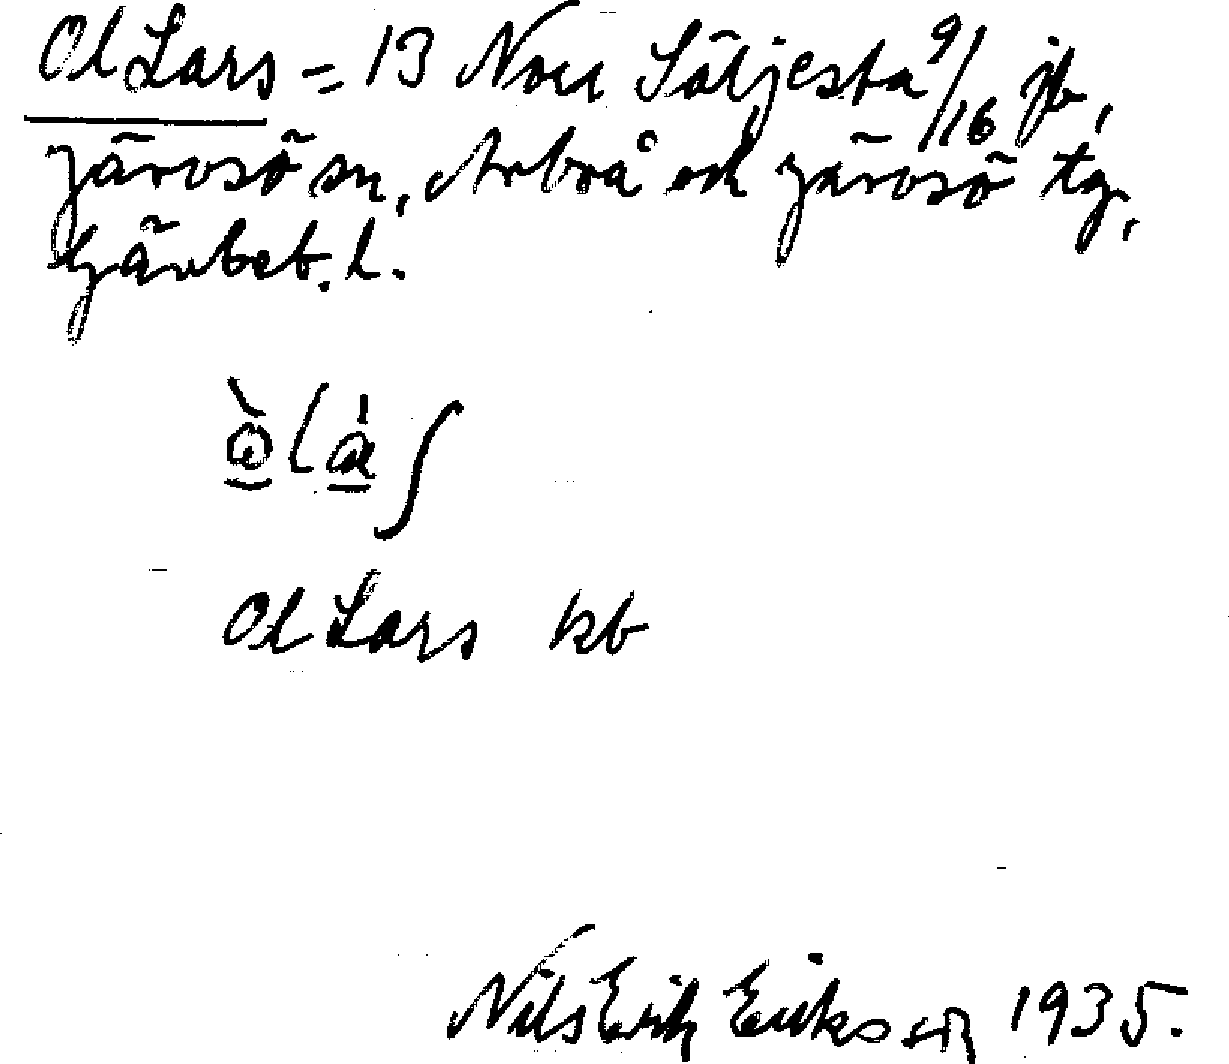 Ol Lars = 13 Norr Säljesta 9/16 jb,
Järvsö sn, Arbrå och Järvsö tg,
Gävleb. l.
òlás
Ol Lars kb
Nils Erik Eriksson 1935.